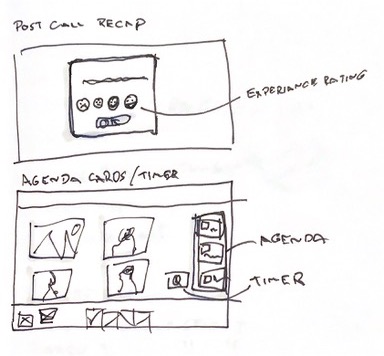 POST CALL RECAP
EXPERIENCE RATING
OK
AGENDA CARDS/TIMER
AGENDA
TIMER